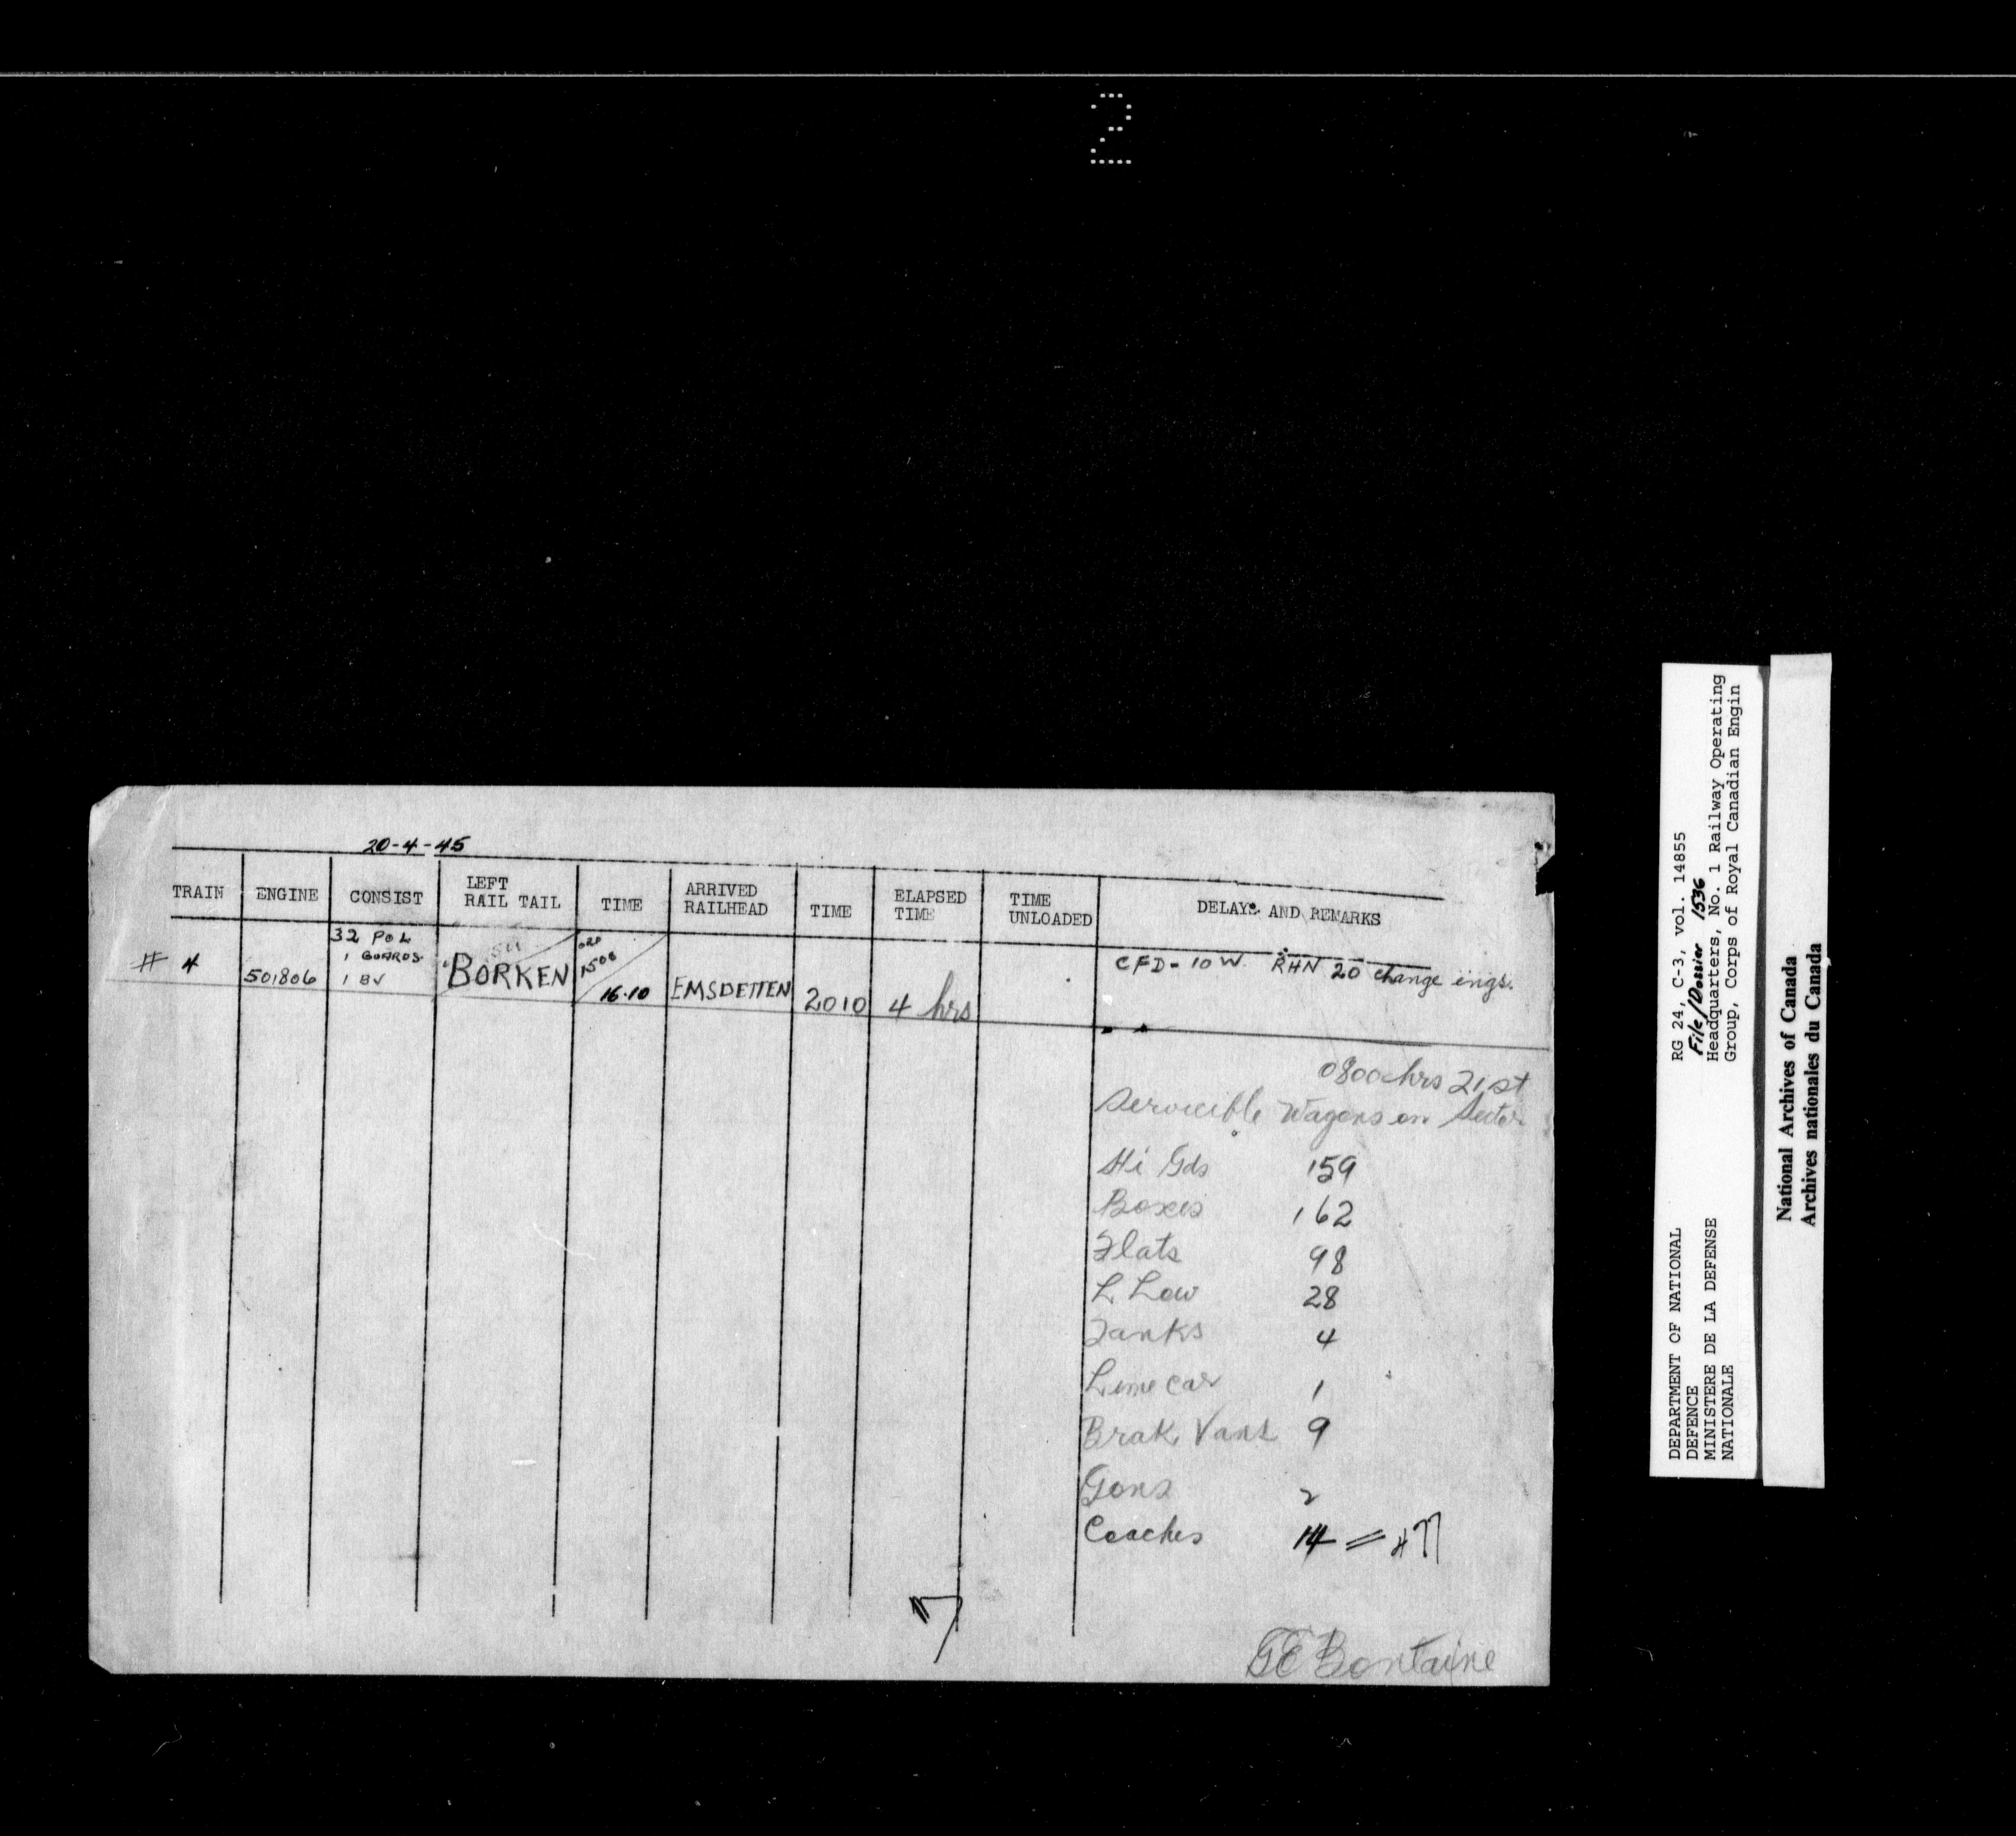 2
20-4-45
TRAIN ENGINE CONSIST LEFT RAIL TAIL TIME ARRIVED RAILHEAD TIME ELAPSED TIME TIME UNLOADED DELAYS AND REMARKS
# 4 501806 32 POL 1 GUARDS 1 BV BORKEN 1500 16.10 EMSDETTEN 2010 4 hrs CFD-10W. RHN 20 change engs.
0800 hrs 21st
Servicible Wagons on Sector
Hi Gds 159
Boxes 162
Flats 98
L Low 28
Tanks 4
Lime car 1
Brak Vans 9
Gons 2
Coaches 14 = 477
GE Bontaine
DEPARTMENT OF NATIONAL
DEFENCE
MINISTERE DE LA DEFENSE
NATIONALE
RG 24, C-3, vol. 14855
File/Dossier 1536
Headquarters, No. 1 Railway Operating
Group, Corps of Royal Canadian Engin
National Archives of Canada
Archives nationales du Canada